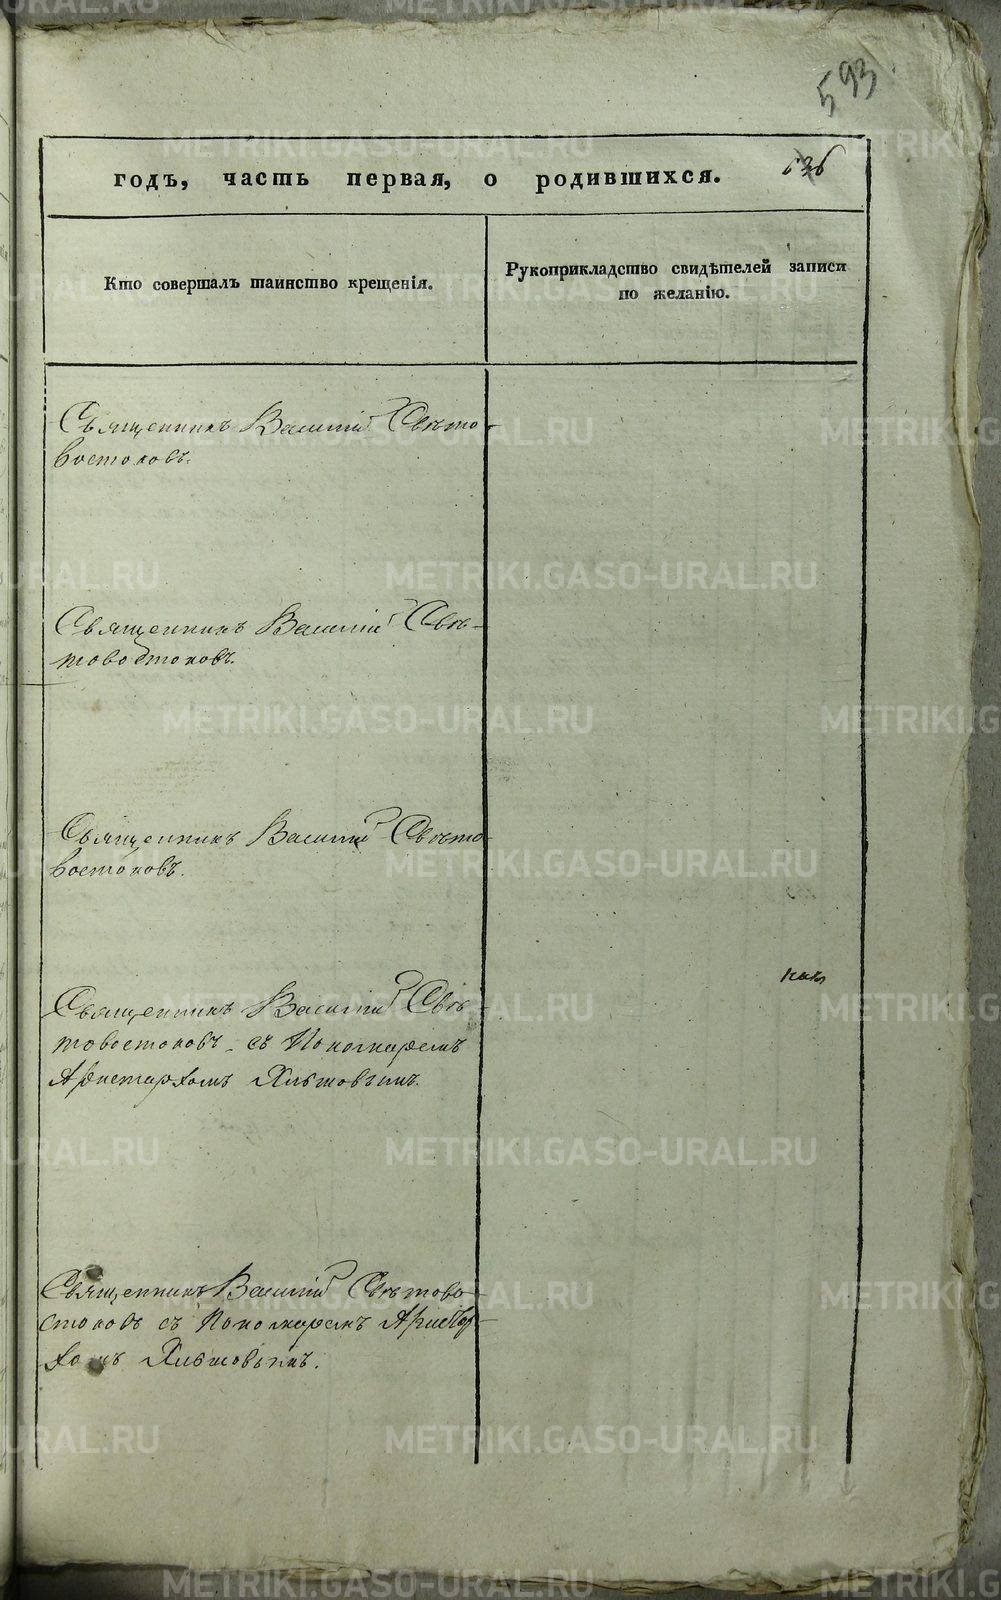 593
годъ, часть первая, о родившихся.
Кто совершалъ таинство крещенія.
Рукоприкладство свидѣтелей записи
по желанію.
Священникъ Василій Свѣто-
востоковъ.
Священникъ Василій Свѣ-
товостоковъ.
Священникъ Василій Свѣто-
востоковъ.
Священникъ Василій Свѣ
товостоковъ съ Пономаремъ
Аристархомъ Хлѣтовымъ.
Священникъ Василій Свѣтово-
стоковъ съ Пономаремъ Аристар-
хомъ Хлѣтовымъ.
METRIKI.GASO-URAL.RU